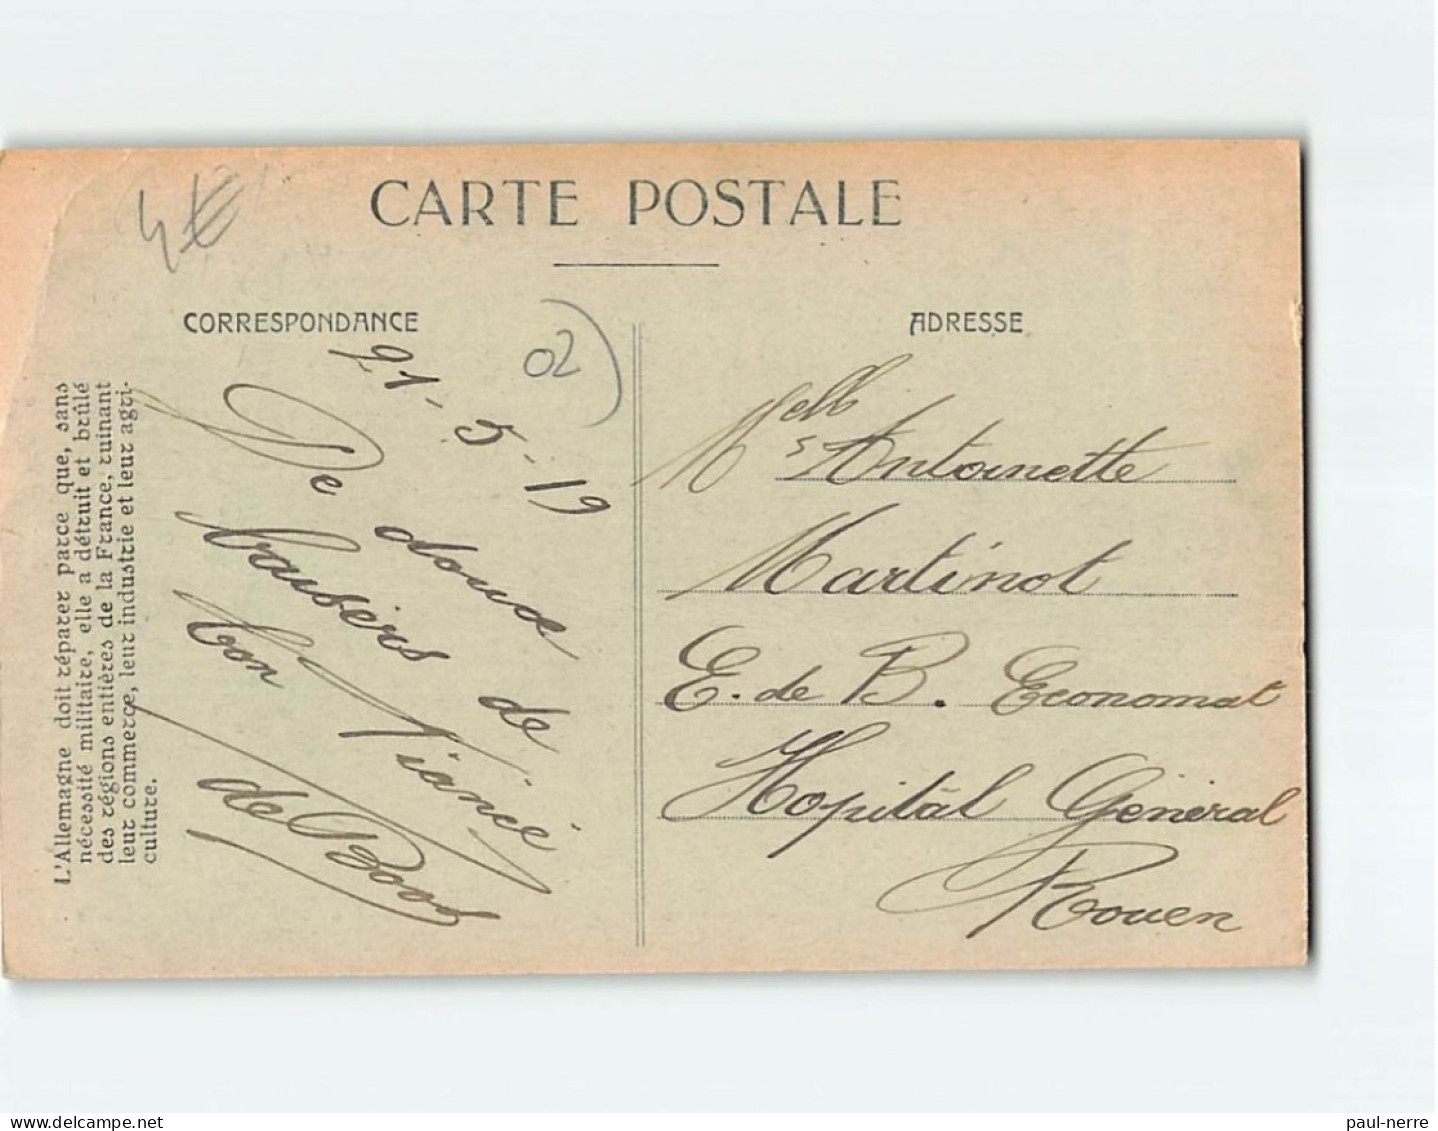 4€
CARTE POSTALE
CORRESPONDANCE
ADRESSE
02
L'Allemagne doit réparer parce que, sans
nécessité militaire, elle a détruit et brûlé
des régions entières de la France, ruinant
leur commerce, leur industrie et leur agri-
culture.
21-5-19
De doux
baisers de
ton Fiancé
de
Melle
Antoinette
Martinot
E. de B. Economat
Hopitâl Général
Rouen
paul-nerre